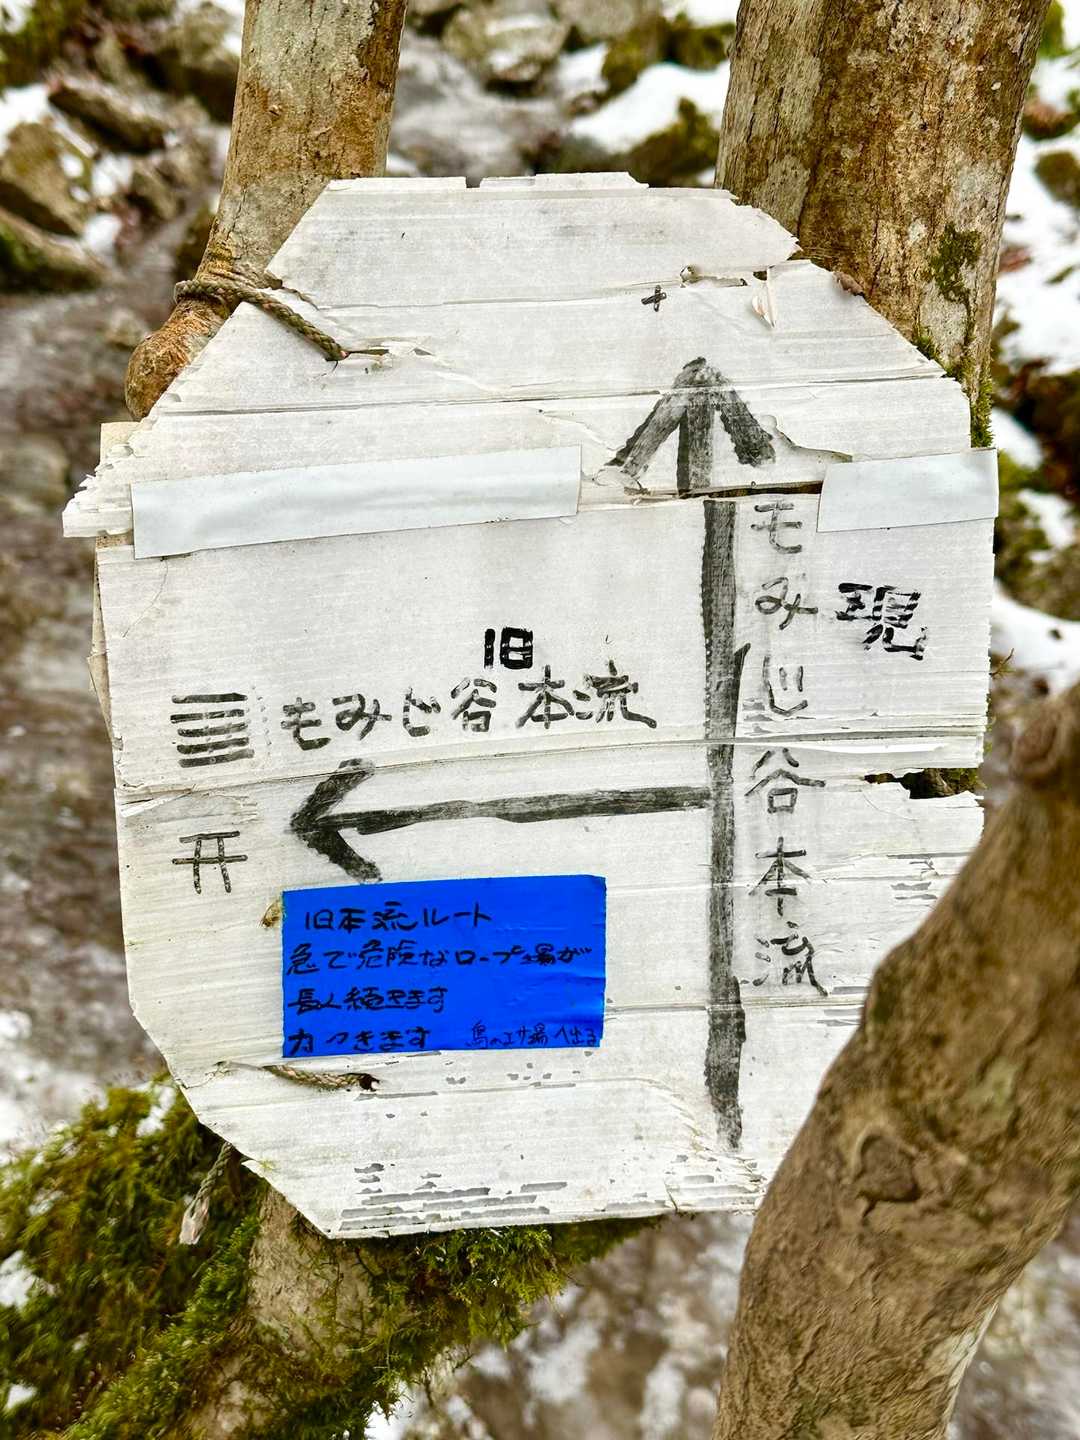 旧
もみじ谷本流
もみじ谷本流
現
旧本流ルート
急で危険なロープ場が
長く続きます
力つきます 鳥のエサ場へ出る